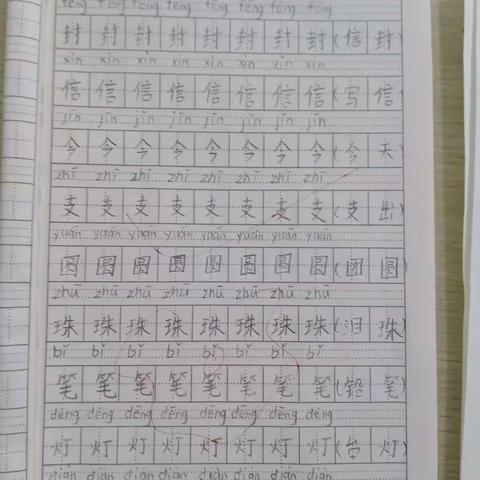 fēng fēng fēng fēng fēng fēng fēng fēng
封 封 封 封 封 封 封 封 (信 封)
xìn xìn xìn xìn xìn xìn xìn xìn
信 信 信 信 信 信 信 信 (写 信)
jīn jīn jīn jīn jīn jīn jīn jīn
今 今 今 今 今 今 今 今 (今 天)
zhī zhī zhī zhī zhī zhī zhī zhī
支 支 支 支 支 支 支 支 (支 出)
yuán yuán yuán yuán yuán yuán yuán yuán
圆 圆 圆 圆 圆 圆 圆 圆 (团 圆)
zhū zhū zhū zhū zhū zhū zhū zhū
珠 珠 珠 珠 珠 珠 珠 珠 (泪 珠)
bǐ bǐ bǐ bǐ bǐ bǐ bǐ bǐ
笔 笔 笔 笔 笔 笔 笔 笔 (铅 笔)
dēng dēng dēng dēng dēng dēng dēng dēng
灯 灯 灯 灯 灯 灯 灯 灯 (台 灯)
diàn diàn diàn diàn diàn diàn diàn diàn